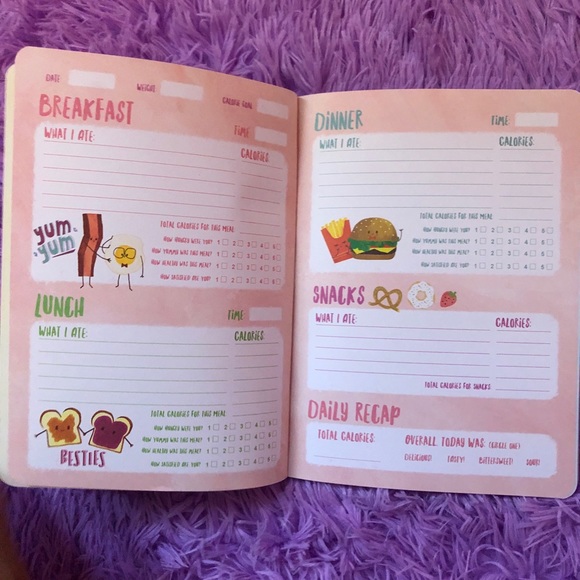 DATE WEIGHT CALORIE GOAL
BREAKFAST
TIME
WHAT I ATE: CALORIES:
YUM YUM
TOTAL CALORIES FOR THIS MEAL
HOW HUNGRY WERE YOU? 1 2 3 4 5
HOW YUMMY WAS THIS MEAL? 1 2 3 4 5
HOW HEALTHY WAS THIS MEAL? 1 2 3 4 5
HOW SATISFIED ARE YOU? 1 2 3 4 5
LUNCH TIME
WHAT I ATE: CALORIES:
TOTAL CALORIES FOR THIS MEAL
HOW HUNGRY WERE YOU? 1 2 3 4 5
HOW YUMMY WAS THIS MEAL? 1 2 3 4 5
HOW HEALTHY WAS THIS MEAL? 1 2 3 4 5
HOW SATISFIED ARE YOU? 1 2 3 4 5
BESTIES
DINNER TIME:
WHAT I ATE: CALORIES:
TOTAL CALORIES FOR THIS MEAL
HOW HUNGRY WERE YOU? 1 2 3 4 5
HOW YUMMY WAS THIS MEAL? 1 2 3 4 5
HOW HEALTHY WAS THIS MEAL? 1 2 3 4 5
HOW SATISFIED ARE YOU? 1 2 3 4 5
SNACKS
WHAT I ATE: CALORIES:
TOTAL CALORIES FOR SNACKS
DAILY RECAP
TOTAL CALORIES: OVERALL TODAY WAS: (CIRCLE ONE)
DELICIOUS! TASTY! BITTERSWEET! SOUR!